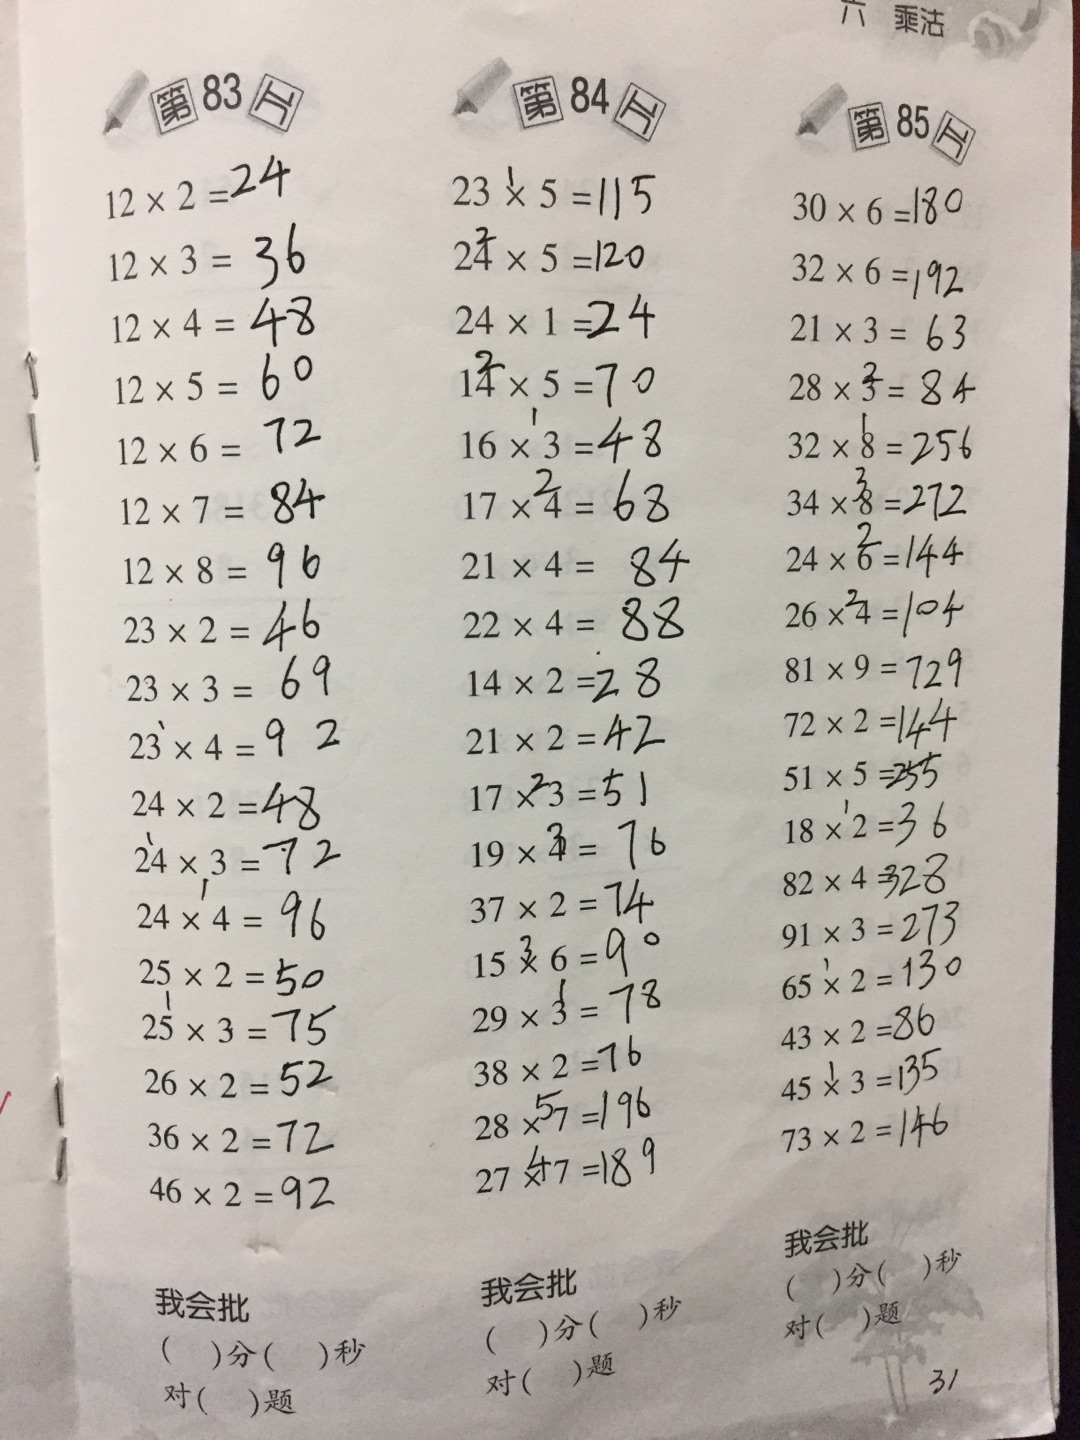 六 乘法
第83天
12 × 2 = 24
12 × 3 = 36
12 × 4 = 48
12 × 5 = 60
12 × 6 = 72
12 × 7 = 84
12 × 8 = 96
23 × 2 = 46
23 × 3 = 69
23 × 4 = 92
24 × 2 = 48
24 × 3 = 72
24 × 4 = 96
25 × 2 = 50
25 × 3 = 75
26 × 2 = 52
36 × 2 = 72
46 × 2 = 92
我会批
( )分( )秒
对( )题
第84天
23 × 5 = 115
24 × 5 = 120
24 × 1 = 24
14 × 5 = 70
16 × 3 = 48
17 × 4 = 68
21 × 4 = 84
22 × 4 = 88
14 × 2 = 28
21 × 2 = 42
17 × 3 = 51
19 × 4 = 76
37 × 2 = 74
15 × 6 = 90
29 × 3 = 78
38 × 2 = 76
28 × 7 = 196
27 × 7 = 189
我会批
( )分( )秒
对( )题
第85天
30 × 6 = 180
32 × 6 = 192
21 × 3 = 63
28 × 3 = 84
32 × 8 = 256
34 × 8 = 272
24 × 6 = 144
26 × 4 = 104
81 × 9 = 729
72 × 2 = 144
51 × 5 = 255
18 × 2 = 36
82 × 4 = 328
91 × 3 = 273
65 × 2 = 130
43 × 2 = 86
45 × 3 = 135
73 × 2 = 146
我会批
( )分( )秒
对( )题
31